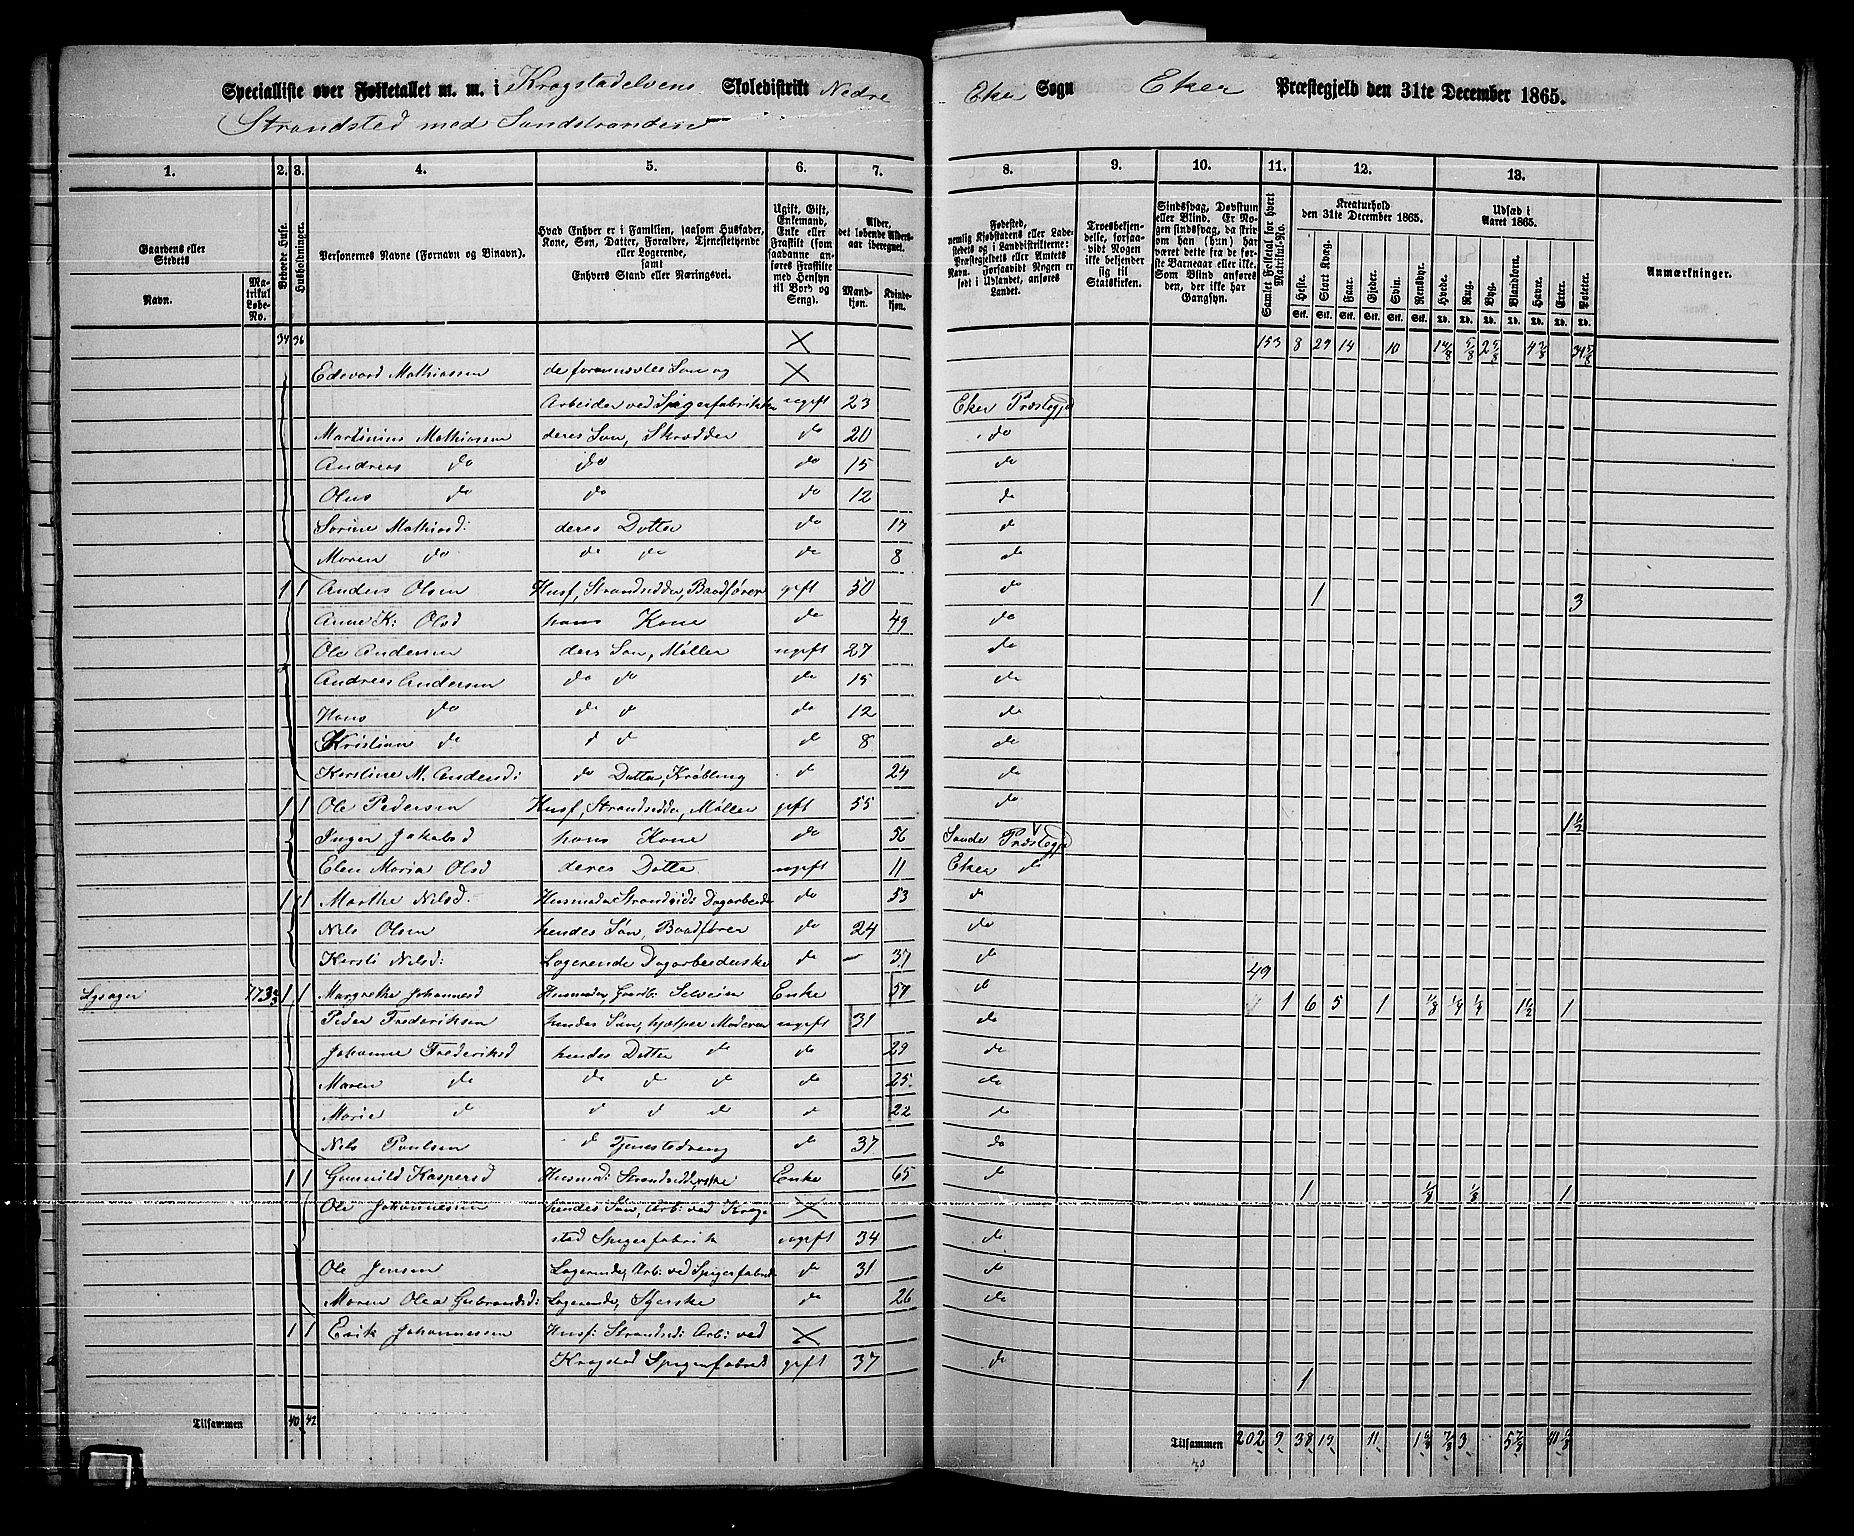 Specialliste over Folketallet m. m. i Krogstadelvens Skoledistrikt Nedre Eker Sogn Eker Præstegjeld den 31te December 1865.
Strandsted med Sandstranden
1. 2. 3. 4. 5. 6. 7. 8. 9. 10. 11. 12. 13.
Gaardens eller Stedets Navn. Matrikul Løbe-No. Beboede Huse. Husholdninger. Personernes Navne (Fornavn og Binavn). Hvad Enhver er i Familien, saasom Husfader, Kone, Søn, Datter, Forældre, Tjenestetyende eller Logerende, samt Enhvers Stand eller Næringsvei. Ugift, Gift, Enkemand, Enke eller Fraskilt (som saadanne anføres Fraskilte med Hensyn til Bord og Seng). Alder, det løbende Alders-aar iberegnet. Mandkjøn. Kvindekjøn.
Fødested, nemlig Kjøbstadens eller Ladestedets og i Landdistrikterne: Præstegjeldets eller Amtets Navn. Forsaavidt Nogen er født i Udlandet, anføres Landet. Troesbekjendelse, forsaavidt Nogen ikke bekjender sig til Statskirken. Sindssvag, Døvstum eller Blind. Er Nogen sindssvag, da skrives om han (hun) har været dette fra de første Barneaar eller ikke. Som Blind anføres den, der ikke har Gangsyn. Samlet Folketal for hvert Matrikul-No. Kreaturhold den 31te December 1865. Heste. Stort Kvæg. Faar. Gjeder. Svin. Rensdyr. Udsæd i Aaret 1865. Hvede. Rug. Byg. Blandkorn. Havre. Erter. Poteter. Anmærkninger.
34 36 153 8 29 14 10
Edvard Mathiassen de forannævntes Søn og
Arbeider ved Spigerfabrikken ugift 23 Eker Præstegjd
Martinius Mathiassen deres Søn, Skrædder do 20 do
Andreas do do do 15 do
Olus do do do 12 do
Sorine Mathiasd: deres Datter do 17 do
Maren do do do do 8 do
1 1 Anders Olsen Husf, Strandsidder, Baadfører gift 50 do 1 3
Anne K: Olsd hans Kone do 49 do
Ole Andersen ders Søn, Møller ugift 27 do
Andreas Andersen do do do 15 do
Hans do do do do 12 do
Kristian do d d do 8 do
Kirstine M. Andersd: do Datter, Krøbling do 24 do
1 1 Ole Pedersen Husf, Strandsidder, Møller gift 55 do 1½
Inger Jakobsd hans Kone do 56 Sande Præstegjd
Elen Maria Olsd deres Datter ugift 11 Eker do
1 1 Marthe Nilsd Husmoder Strandsid: Dagarbeide do 53 do
Nils Olsen hendes Søn, Baadfører do 24 do
Kirsti Nilsd: Logerende Dagarbeiderske do 37 do 49
Lysager 1 1 Margrethe Johannesd Husmoder, Gaardb: Selveier Enke 57 do 1 6 5 1 ⅛ ¼ ¼ 1½ 1
Peder Frederiksen hendes Søn, hjælper Moderen ugift 31 do
Johanne Frederiksd hendes Datter do do 29 do
Maren do do do do do 25 do
Marie do do do do do 22 do
Nils Paulsen do Tjenestedreng do 37 do
1 1 Gunnild Kaspersd Husmod: Strandsidderske Enke 65 do 1 ⅛ ⅛ 1
Ole Johannessen hendes Søn, Arb: ved Krog-
stad Spigerfabrik ugift 34 do
Ole Jensen Logerende, Arb: ved Spigerfabrik do 31 do
Maren Olea Gubrandsd: Logerende, Syerske do 26 do
1 1 Erik Johannessen Husf: Strandsid: Arb: ved
Krogstad Spigerfabrik gift 37 do
1
Tilsammen 40 42 Tilsammen 202 9 38 19 11